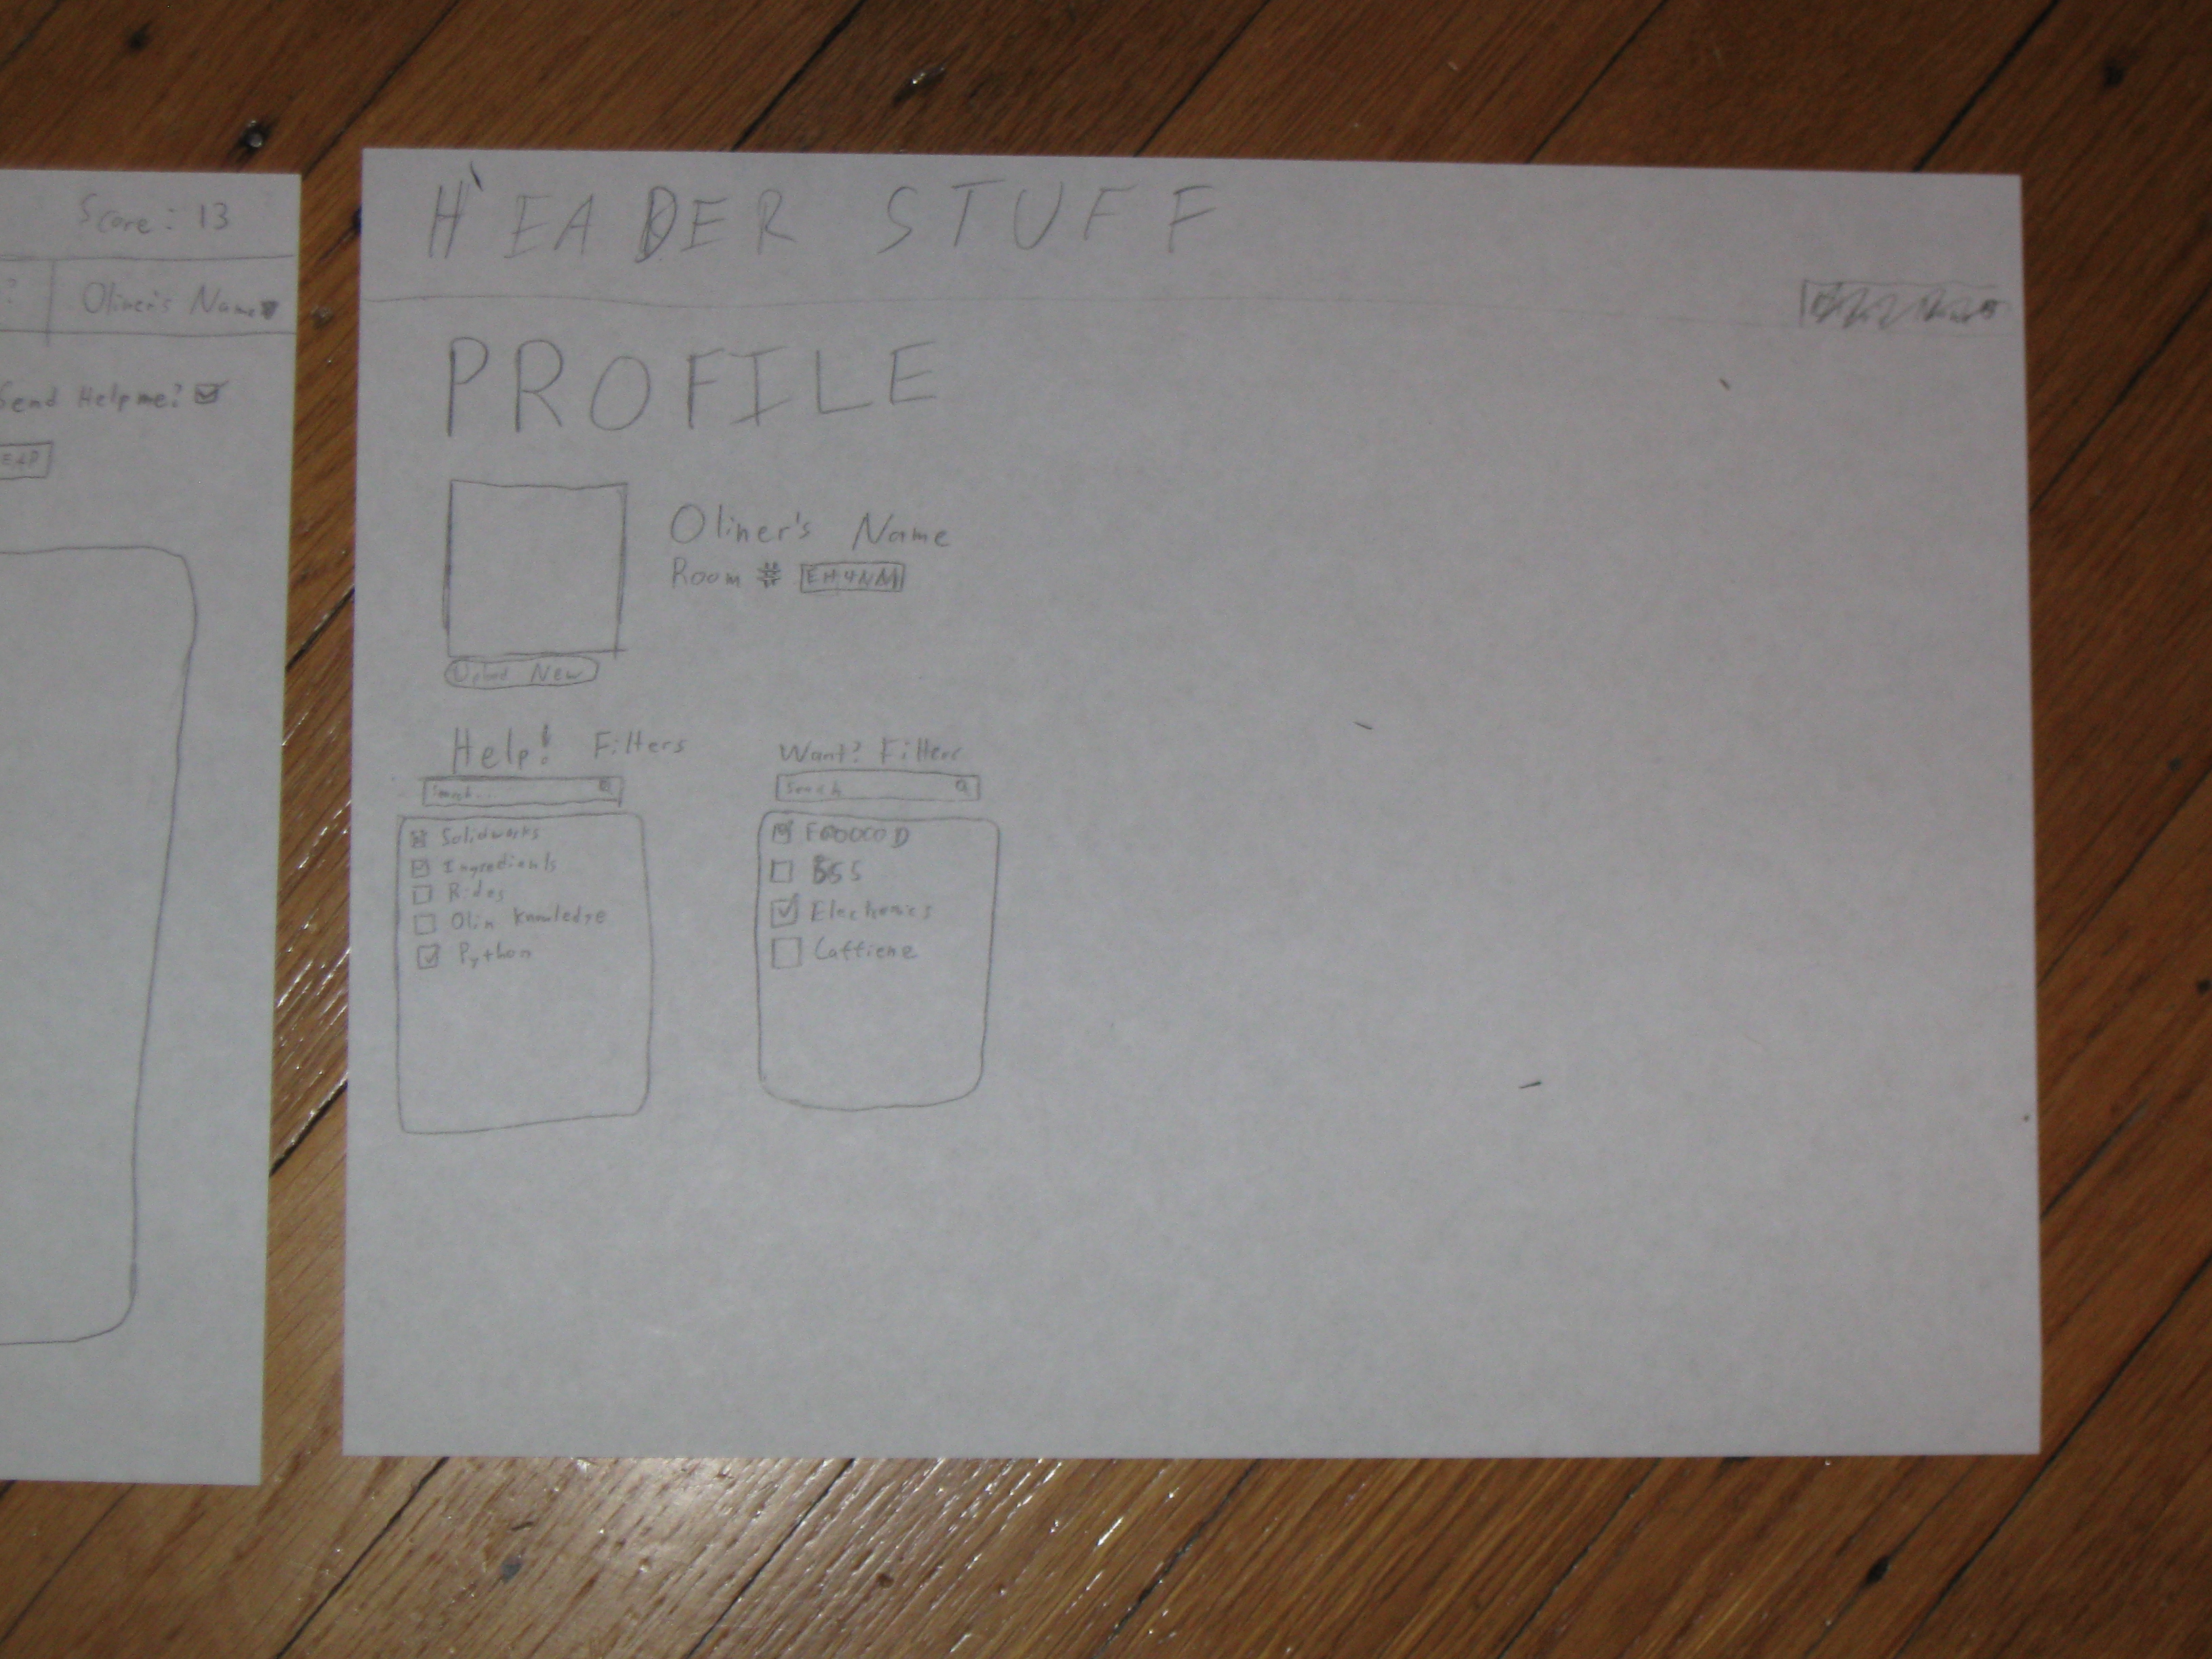 Score: 13
?
Oliner's Name
Send Helpme?
HEADER STUFF
PROFILE
Oliner's Name
Room # EH4NM
Upload New
Help! Filters
Search...
Solidworks
Ingredients
Rides
Olin Knowledge
Python
Want? Filters
Search
FOOOOOD
$$$
Electronics
Caffiene